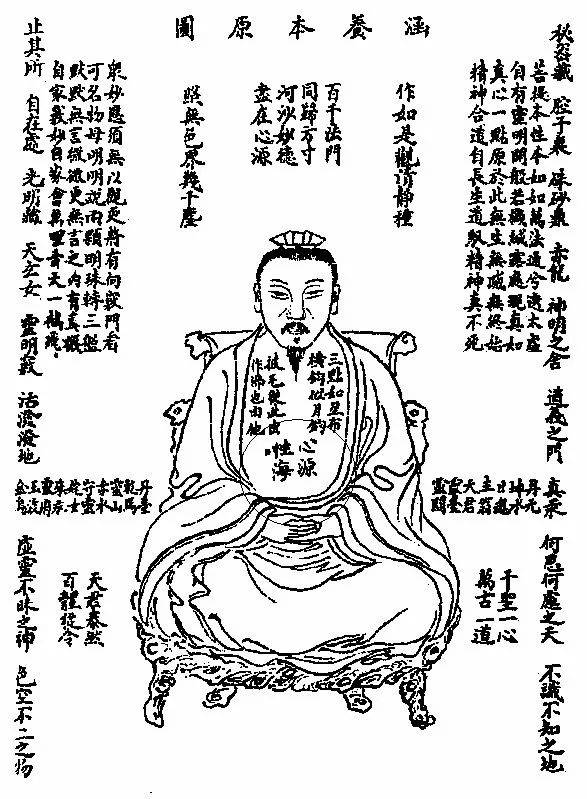 涵養本原圖
秘密藏 腔子裏 硃砂鼎 赤龍 神明之舍 道義之門 真汞 何思何慮之天 不識不知之地
菩提本性本如如萬法通兮徹太虛
自有靈明開般若機緘露處現真如
真心一點原於此無生無滅無終始
精神合道自長生道馭精神真不死
作如是觀清靜種
百千法門
同歸方寸
河沙妙德
盡在心源
照無色界幾千塵
眾妙應須無以觀更將有向竅門看
可名物母明明說兩顆明珠轉三盤
默默無言微微更無言之內有真機
自家義妙自家會萬里青天一鶴飛
止其所 自在處 光明藏 天玄女 靈明竅 活潑潑地 虛靈不昧之神 色空不二之物
三點如星布
橫鈎似月
披毛從此出
作佛也由他
心源
性海
丹元
神水
日魂
主翁
天君
靈臺
靈關
丹臺
乾馬
靈山
赤水
守靈
姹女
玉液
金烏
千聖一心
萬古一道
天君泰然
百體從令